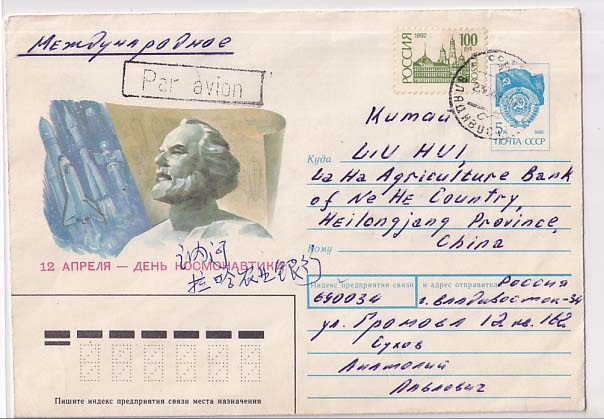 Международное
Par avion
РОССИЯ
1992
100
5
1988
ПОЧТА СССР
Китай
Куда
LIU HUI,
La Ha Agriculture Bank
of Ne He Country,
Heilongjang Province,
China
Кому
讷河
拉哈农业银行
12 АПРЕЛЯ — ДЕНЬ КОСМОНАВТИКИ
Индекс предприятия связи и адрес отправителя
Россия
690034 г. Владивосток-34
ул. Громова 12 кв. 162
Сухов
Анатолий
Павлович
Пишите индекс предприятия связи места назначения